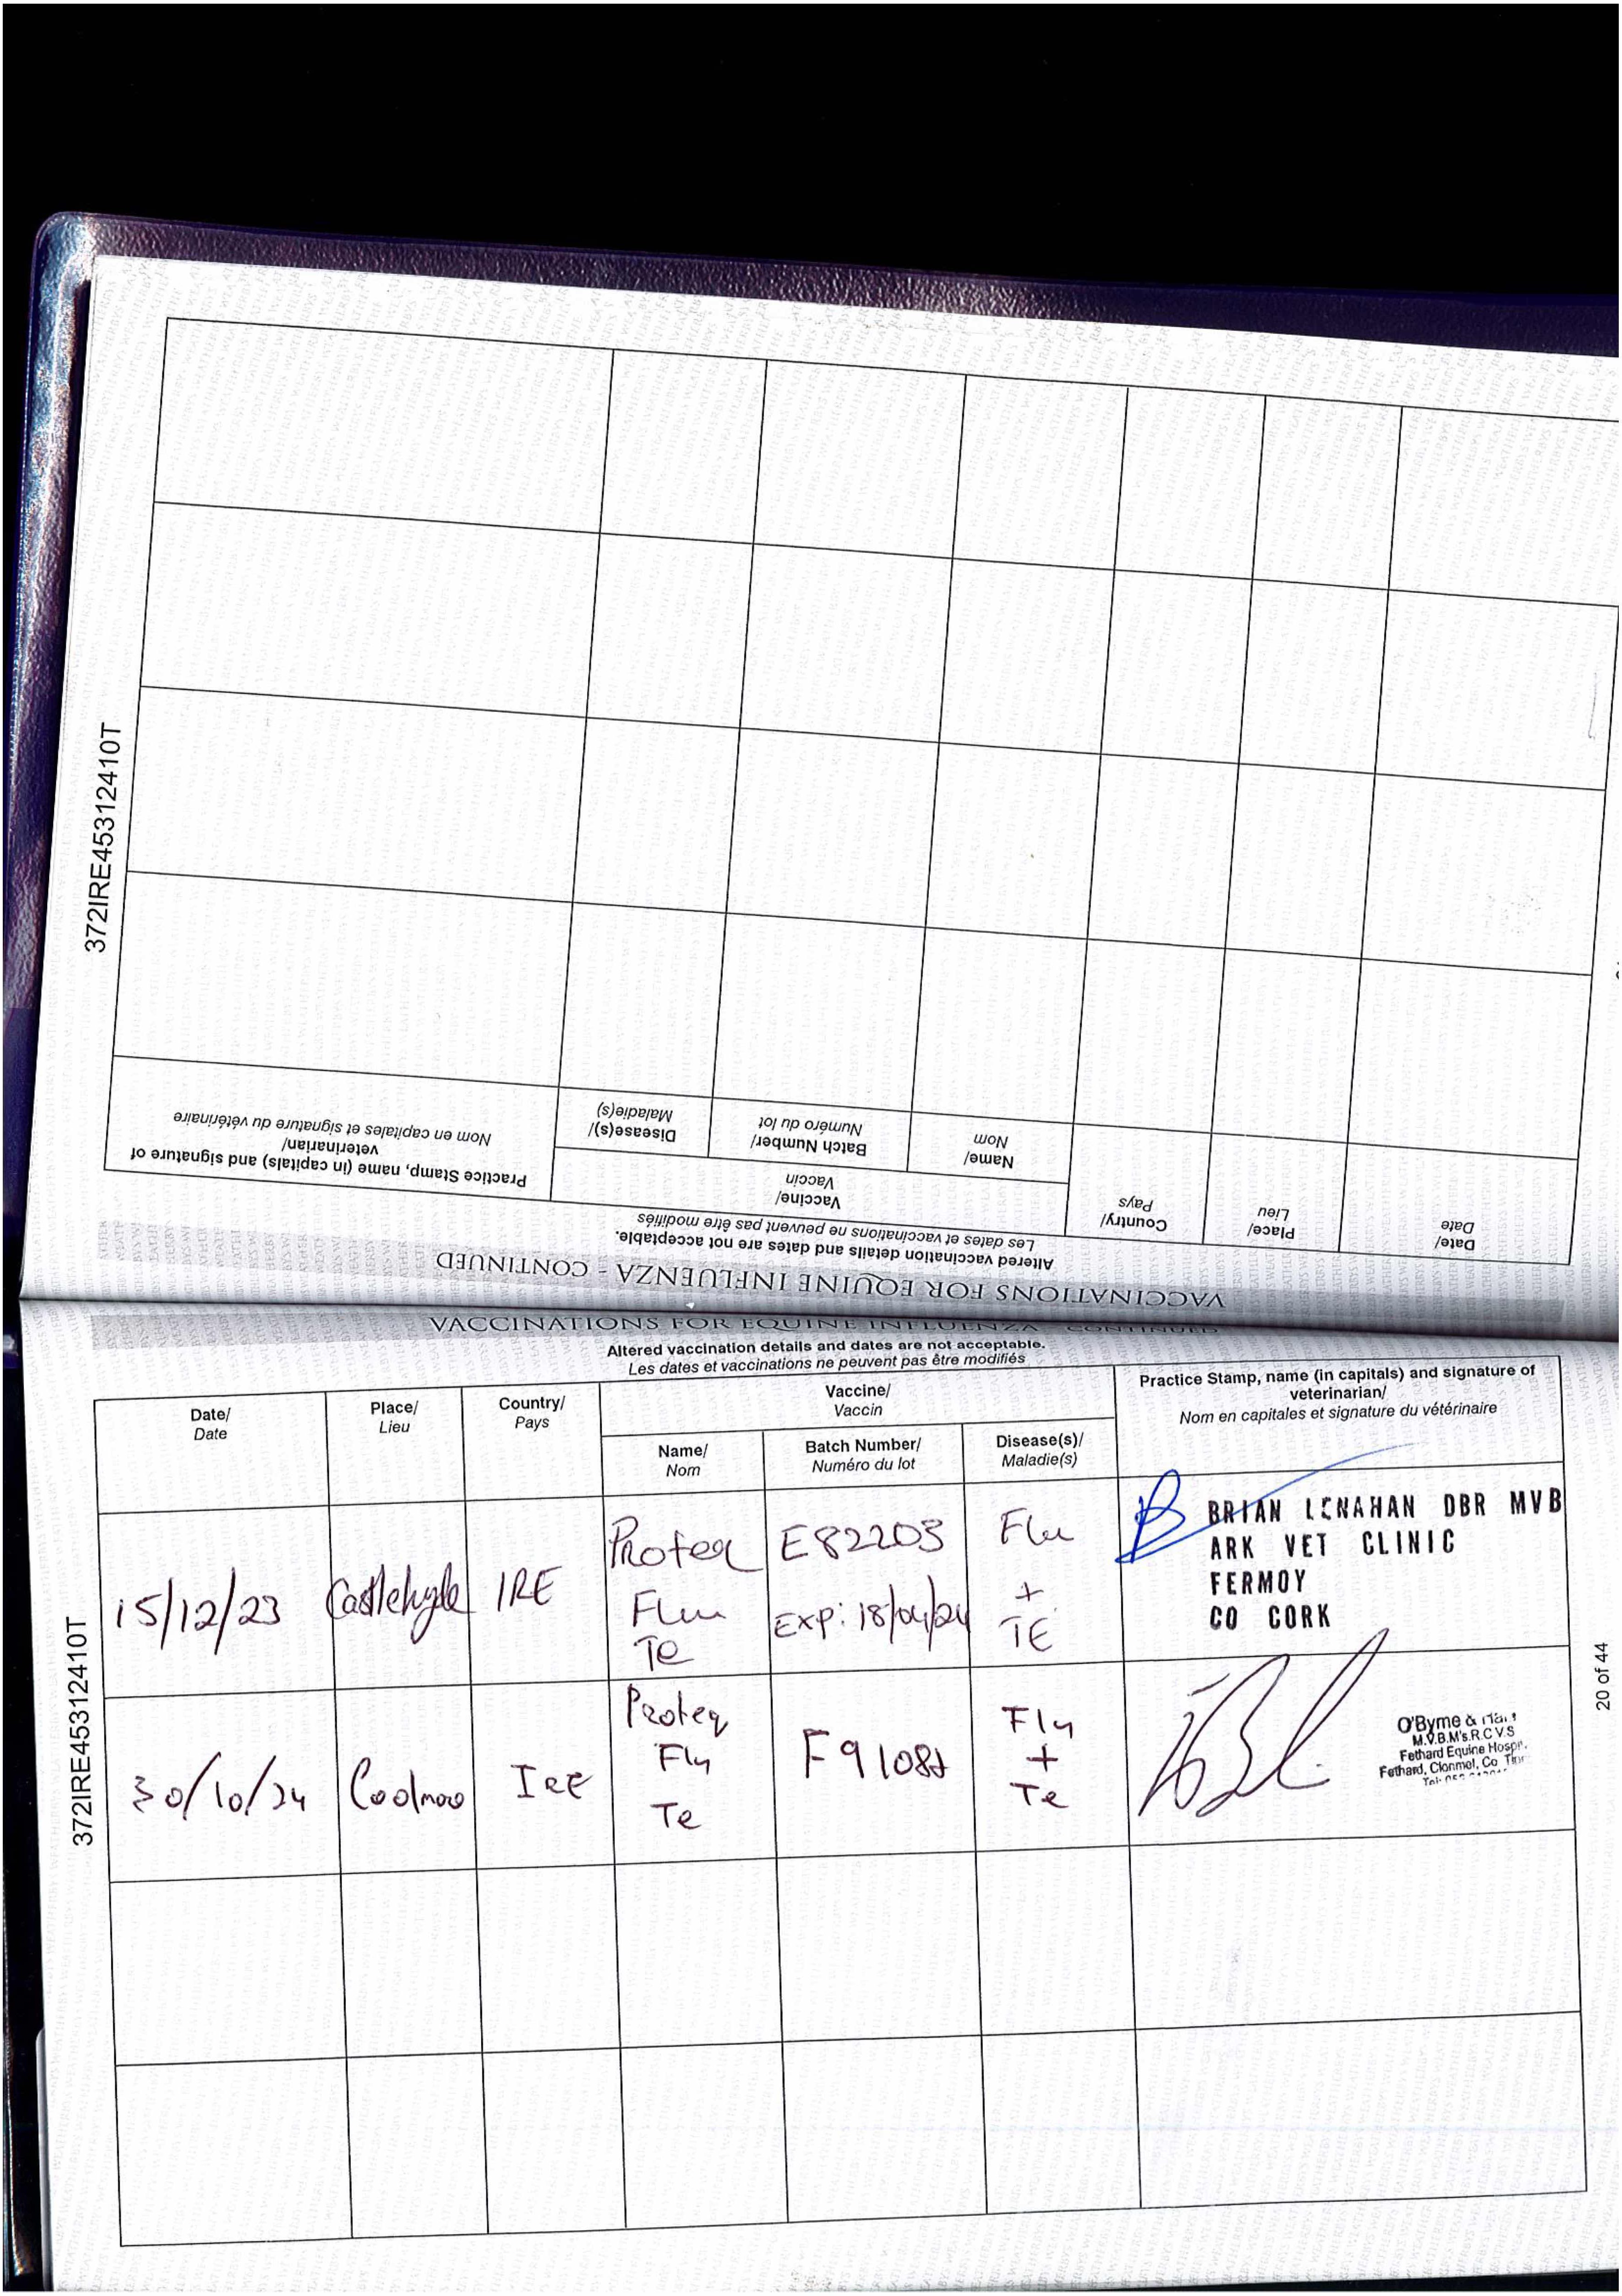 372IRE45312410T
VACCINATIONS FOR EQUINE INFLUENZA - CONTINUED
Altered vaccination details and dates are not acceptable.
Les dates et vaccinations ne peuvent pas être modifiés
Date/
Date
Place/
Lieu
Country/
Pays
Vaccine/
Vaccin
Name/
Nom
Batch Number/
Numéro du lot
Disease(s)/
Maladie(s)
Practice Stamp, name (in capitals) and signature of
veterinarian/
Nom en capitales et signature du vétérinaire
VACCINATIONS FOR EQUINE INFLUENZA - CONTINUED
Altered vaccination details and dates are not acceptable.
Les dates et vaccinations ne peuvent pas être modifiés
Date/
Date
Place/
Lieu
Country/
Pays
Vaccine/
Vaccin
Name/
Nom
Batch Number/
Numéro du lot
Disease(s)/
Maladie(s)
Practice Stamp, name (in capitals) and signature of
veterinarian/
Nom en capitales et signature du vétérinaire
15/12/23
Castlehyde
IRE
Proteq
Flu
Te
E82203
Exp: 18/04/24
Flu
+
TE
BRIAN LENAHAN DBR MVB
ARK VET CLINIC
FERMOY
CO CORK
30/10/24
Coolmoo
IRE
Proteq
Flu
Te
Flu
+
Te
O'Byrne &
M.V.B.M's.R.C.V.S
Fethard Equine
Fethard, Clonmel, Co
372IRE45312410T
20 of 44